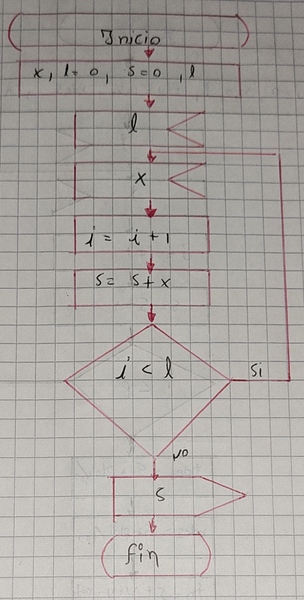 Inicio
x, l=0, s=0, l
l
x
i = i + 1
s = s + x
i < l
si
NO
s
fin